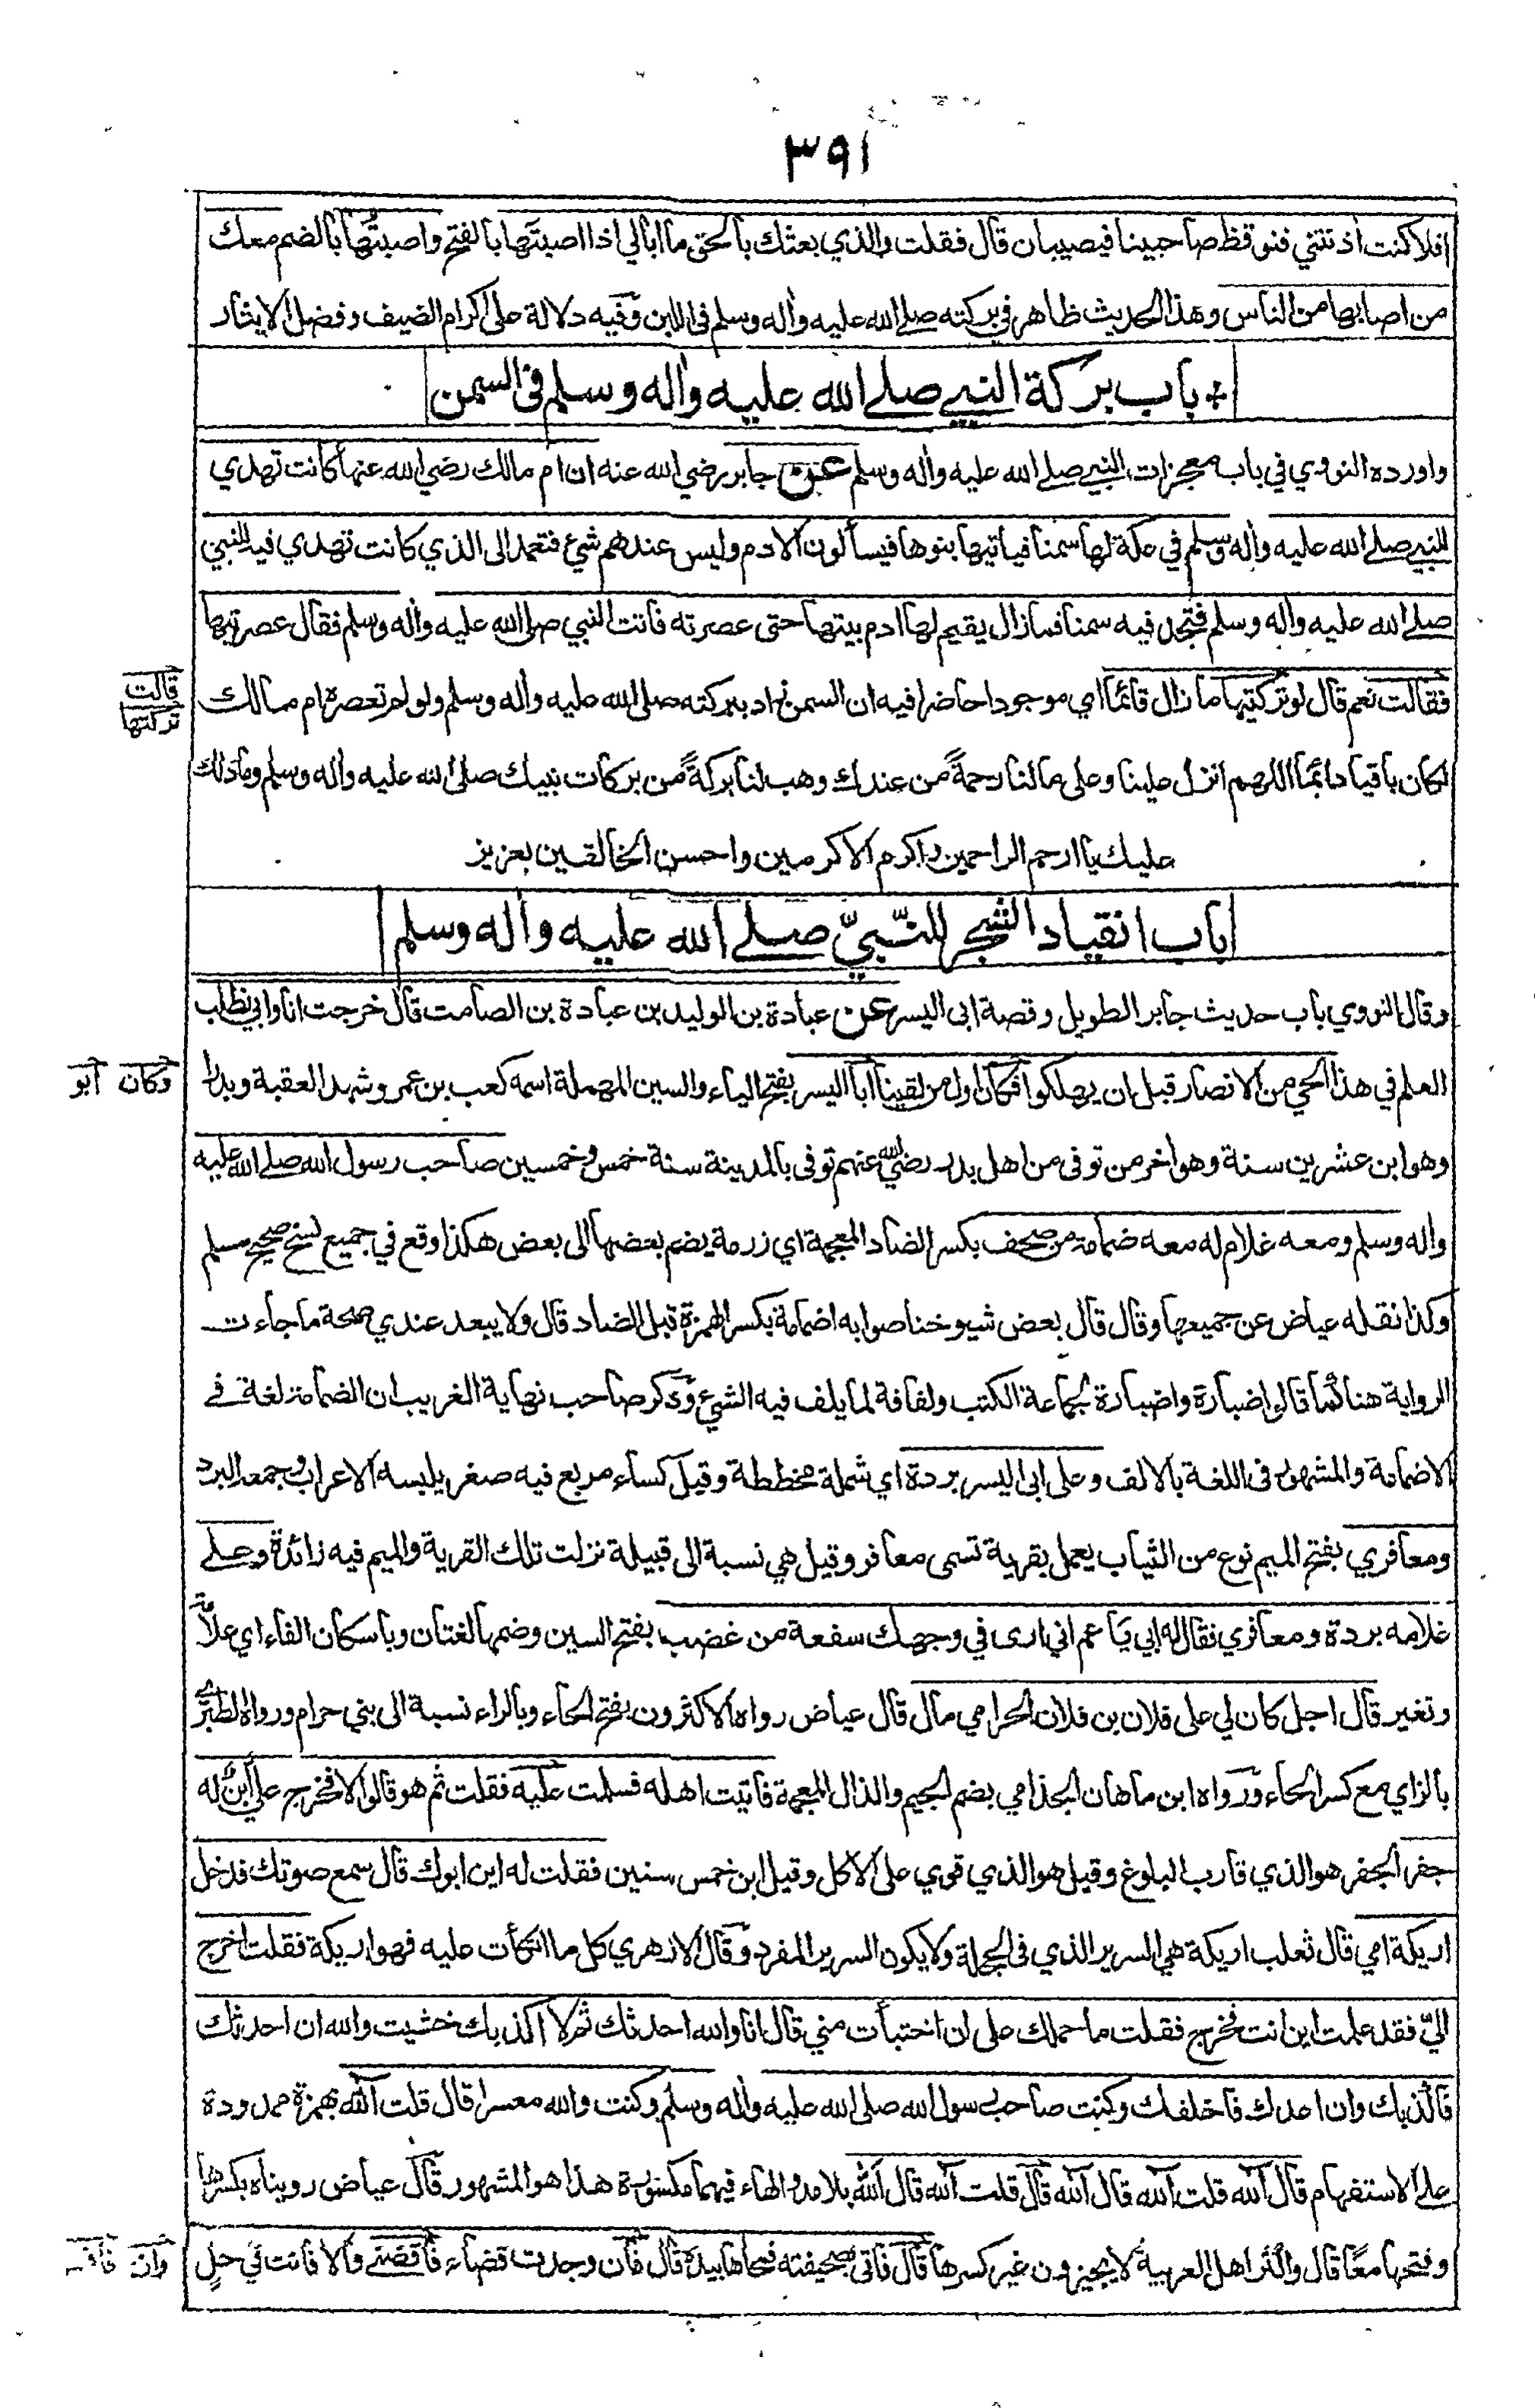 ٣٩١
افلا كنت اذنتني فنوقظ صاحبينا فيصيبان قال فقلت والذي بعثك بالحق ما ابالي اذا اصبتَها بالفتح واصبتُها بالضم معك
من اصابها من الناس وهذا الحديث ظاهر في بركته صلى الله عليه واٰله وسلم في اللبن وفيه دلالة على اكرام الضيف وفضل الايثار
باب بركة النبي صلے الله عليه واٰله وسلم فى السمن
واورده النووي في باب معجزات النبي صلے الله عليه واٰله وسلم عن جابر رضي الله عنه ان ام مالك رضي الله عنها كانت تهدي
للنبي صلے الله عليه واٰله وسلم في عكة لها سمنا فياتيها بنوها فيسألون الادم وليس عندهم شيء فتعمد الى الذي كانت تهدي فيه للنبي
صلے الله عليه واٰله وسلم فتجد فيه سمنا فما زال يقيم لها ادم بيتها حتى عصرته فاتت النبي صلى الله عليه واٰله وسلم فقال عصرتيها
فقالت نعم قال لو تركتيها ما زال قائما اي موجودا حاضرا فيه ان السمن زاد ببركته صلى الله عليه واٰله وسلم ولو لم تعصره ام مالك
قالت
تركتها
لكان باقيا دائما اللهم انزل علينا وعلى مالنا رحمةً من عندك وهب لنا بركةً من بركات نبيك صلى الله عليه واٰله وسلم وما ذلك
عليك يا ارحم الراحمين واكرم الاكرمين واحسن الخالقين بعزيز
باب انقياد الشجر للنّبيّ صلے الله عليه واٰله وسلم
وقال النووي باب حديث جابر الطويل وقصة ابى اليسر عن عبادة بن الوليد بن عبادة بن الصامت قال خرجت انا وابي نطلب
العلم في هذا الحي من الانصار قبل ان يهلكوا فكان اول من لقينا ابا اليسر بفتح الياء والسين المهملة اسمه كعب بن عمرو شهد العقبة وبدرا
وكان ابو
وهو ابن عشرين سنة وهو اٰخر من توفى من اهل بدر رضي الله عنهم توفى بالمدينة سنة خمس وخمسين صاحب رسول الله صلے الله عليه
واٰله وسلم ومعه غلام له معه ضمامة من صحف بكسر الضاد المعجمة اي رزمة يضم بعضها الى بعض هكذا وقع في جميع نسخ صحيح مسلم
وكذا نقله عياض عن جميعها وقال قال بعض شيوخنا صوابه اضمامة بكسر الهمزة قبل الضاد قال ولا يبعد عندي صحة ما جاءت
الرواية هنا كما قالوا ضبارة واضبارة لجماعة الكتب ولفافة لما يلف فيه الشيء وذكر صاحب نهاية الغريب ان الضمامة لغة في
الاضمامة والمشهور فى اللغة بالالف وعلى ابى اليسر بردة اي شملة مخططة وقيل كساء مربع فيه صغر يلبسه الاعراب وجمعه البرد
ومعافري بفتح الميم نوع من الثياب يعمل بقرية تسمى معافر وقيل هي نسبة الى قبيلة نزلت تلك القرية والميم فيه زائدة وعلے
غلامه بردة ومعافري فقال له ابي يا عم اني ارى في وجهك سفعة من غضب بفتح السين وضمها لغتان وباسكان الفاء اي علامة
وتغير قال اجل كان لي على فلان بن فلان الحرامي مال قال عياض رواه الاكثرون بفتح الحاء وبالراء نسبة الى بني حرام ورواه الطبري
بالزاي مع كسر الحاء ورواه ابن ماهان الجذامي بضم الجيم والذال المعجمة فاتيت اهله فسلمت عليه فقلت ثم هو قالوا لا فخرج علي ابن له
جفر الجفر هو الذي قارب البلوغ وقيل هو الذي قوي على الاكل وقيل ابن خمس سنين فقلت له اين ابوك قال سمع صوتك فدخل
اريكة امي قال ثعلب اريكة هي السرير الذي فى الحجلة ولا يكون السرير المفرد وقال الازهري كل ما اتكأت عليه فهو اريكة فقلت اخرج
اليّ فقد علمت اين انت فخرج فقلت ما حملك على ان اختبأت مني قال انا والله احدثك ثم لا اكذبك خشيت والله ان احدثك
فاكذبك وان اعدك فاخلفك وكنت صاحب رسول الله صلى الله عليه واٰله وسلم وكنت والله معسرا قال قلت آلله بهمزة ممدودة
على الاستفهام قال آلله قلت آلله قال آلله قال قلت آلله قال اَلله بلا مد والهاء فيهما مكسورة هذا هو المشهور قال عياض رويناه بكسرها
وفتحها معًا قال واكثر اهل العربية لا يجيزون غير كسرها قال فاتى بصحيفته فمحاها بيده قال فان وجدت قضاء فاقضني والا فانت في حلٍ
وان